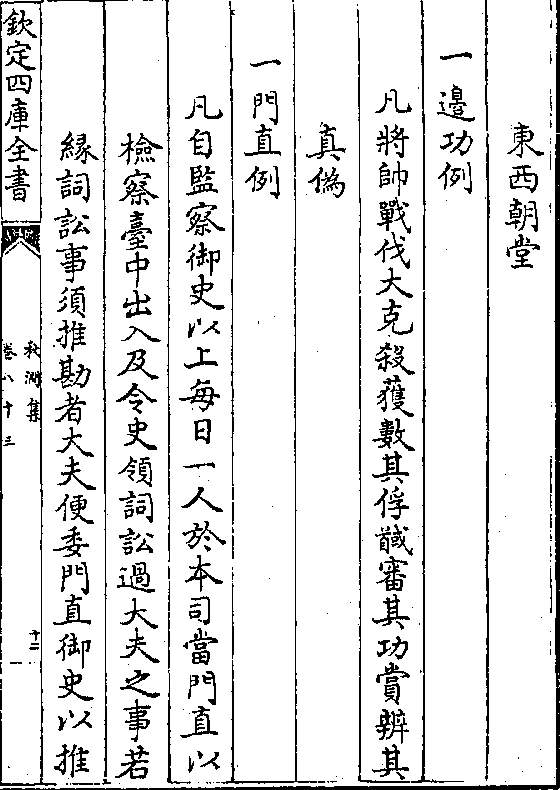 東西朝堂
一邊功例
凡將帥戰伐大克殺獲數其俘馘審其功賞辨其
真偽
一門直例
凡自監察御史以上每日一人於本司當門直以
檢察臺中出入及令史領詞訟過大夫之事若
緣詞訟事須推勘者大夫便委門直御史以推
欽定四庫全書
秋澗集
卷八十三
十二